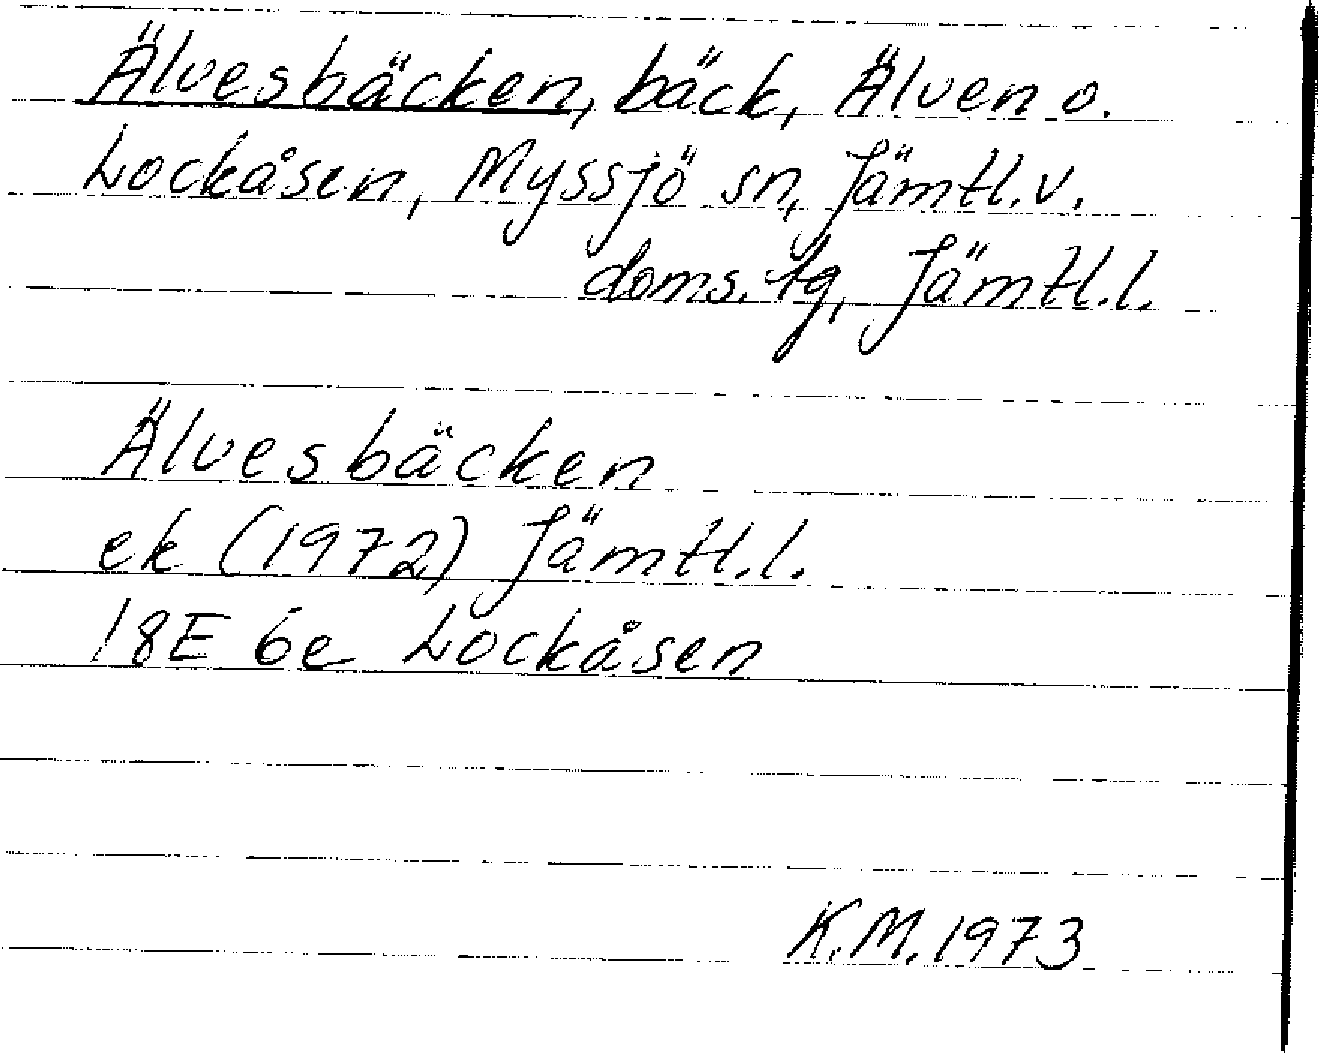 Älvesbäcken, bäck, Älven o.
Lockåsen, Myssjö sn, Jämtl.v.
doms.tg, Jämtl.l.
Älvesbäcken
ek (1972) Jämtl.l.
18E 6e Lockåsen
K.M.1973